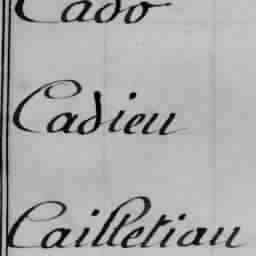 Cado
Cadieu
Cailletiau